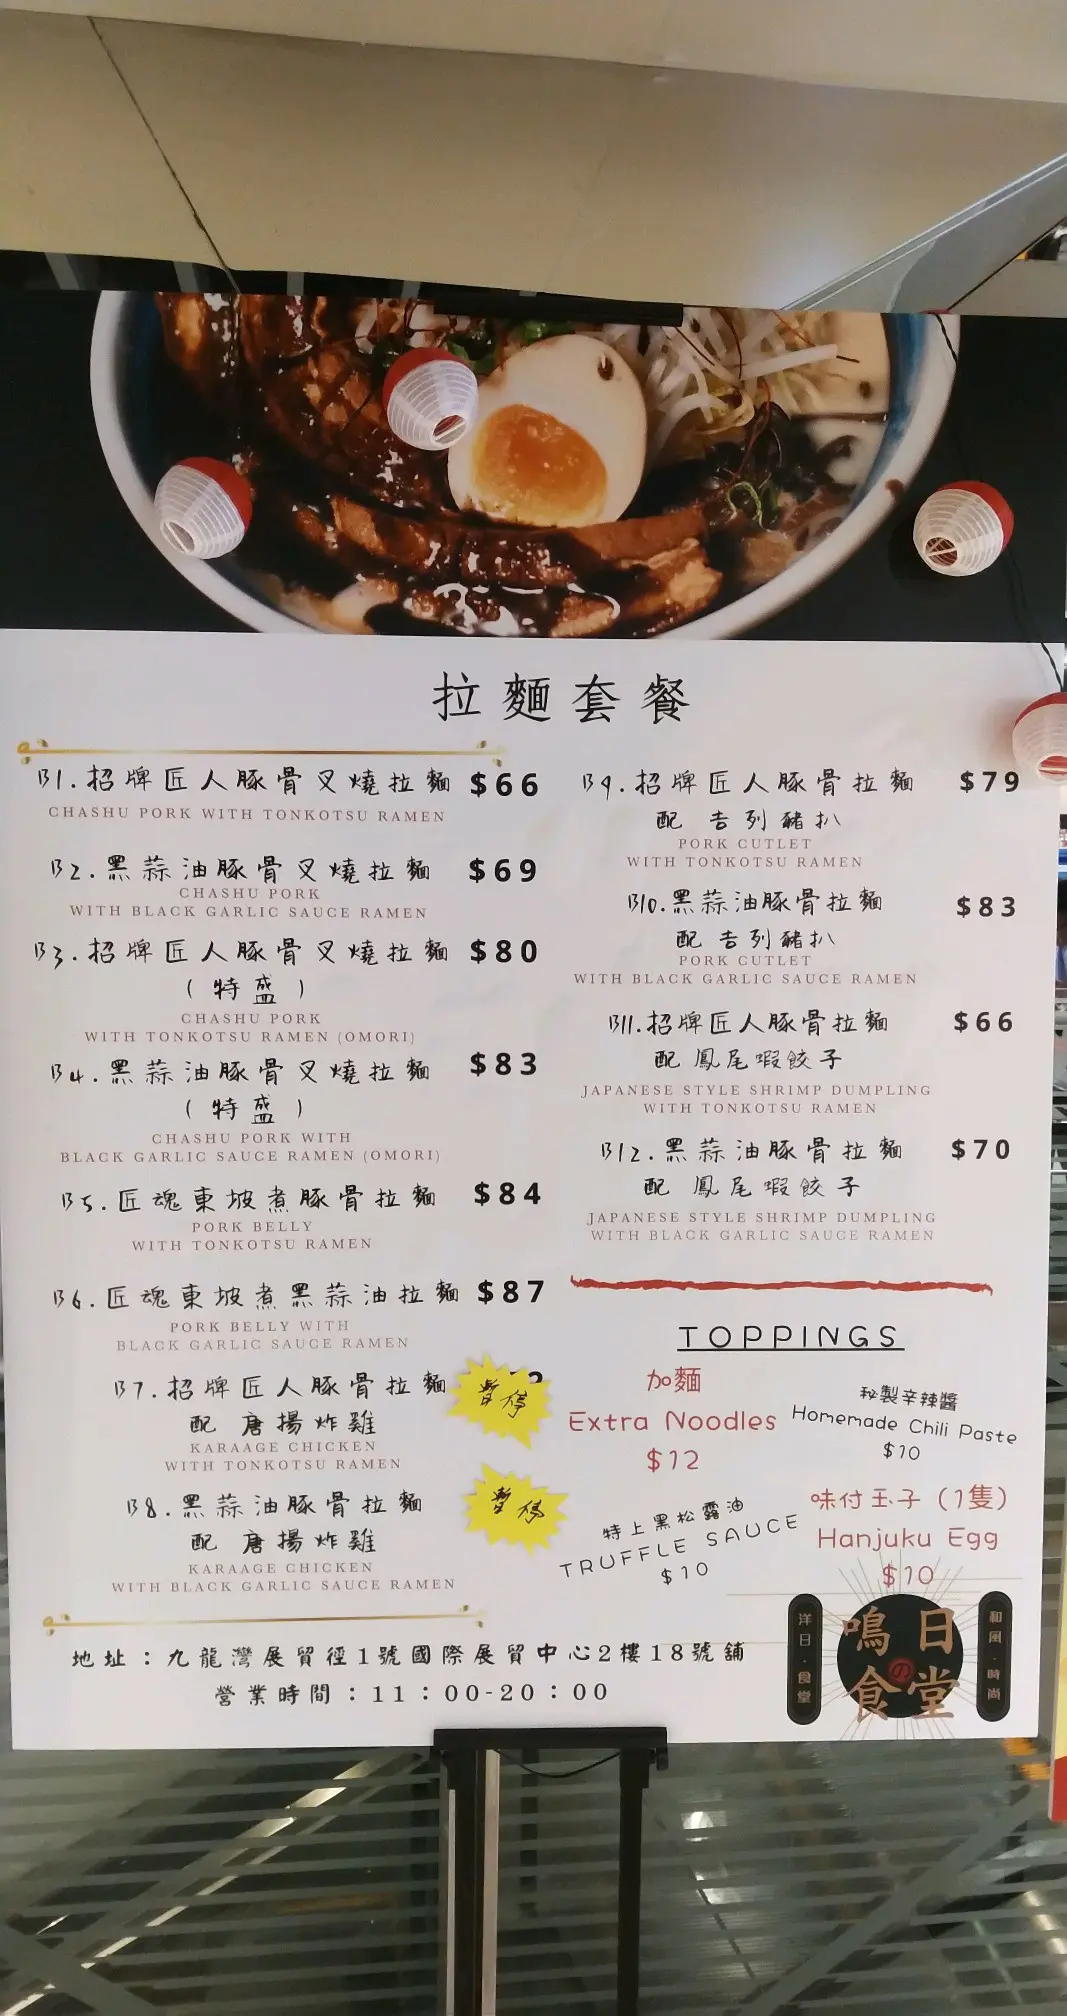 拉麵套餐
B1.招牌匠人豚骨叉燒拉麵 $66
CHASHU PORK WITH TONKOTSU RAMEN
B2.黑蒜油豚骨叉燒拉麵 $69
CHASHU PORK
WITH BLACK GARLIC SAUCE RAMEN
B3.招牌匠人豚骨叉燒拉麵 $80
(特盛)
CHASHU PORK
WITH TONKOTSU RAMEN (OMORI)
B4.黑蒜油豚骨叉燒拉麵 $83
(特盛)
CHASHU PORK WITH
BLACK GARLIC SAUCE RAMEN (OMORI)
B5.匠魂東坡煮豚骨拉麵 $84
PORK BELLY
WITH TONKOTSU RAMEN
B6.匠魂東坡煮黑蒜油拉麵 $87
PORK BELLY WITH
BLACK GARLIC SAUCE RAMEN
B7.招牌匠人豚骨拉麵 暫停
配 唐揚炸雞
KARAAGE CHICKEN
WITH TONKOTSU RAMEN
B8.黑蒜油豚骨拉麵 暫停
配 唐揚炸雞
KARAAGE CHICKEN
WITH BLACK GARLIC SAUCE RAMEN
B9.招牌匠人豚骨拉麵 $79
配 吉列豬扒
PORK CUTLET
WITH TONKOTSU RAMEN
B10.黑蒜油豚骨拉麵 $83
配 吉列豬扒
PORK CUTLET
WITH BLACK GARLIC SAUCE RAMEN
B11.招牌匠人豚骨拉麵 $66
配 鳳尾蝦餃子
JAPANESE STYLE SHRIMP DUMPLING
WITH TONKOTSU RAMEN
B12.黑蒜油豚骨拉麵 $70
配 鳳尾蝦餃子
JAPANESE STYLE SHRIMP DUMPLING
WITH BLACK GARLIC SAUCE RAMEN
TOPPINGS
加麵
Extra Noodles
$12
秘製辛辣醬
Homemade Chili Paste
$10
特上黑松露油
TRUFFLE SAUCE
$10
味付玉子 (1隻)
Hanjuku Egg
$10
地址：九龍灣展貿徑1號國際展貿中心2樓18號舖
營業時間：11：00-20：00
洋日·食堂
鳴日
の
食堂
和風·時尚